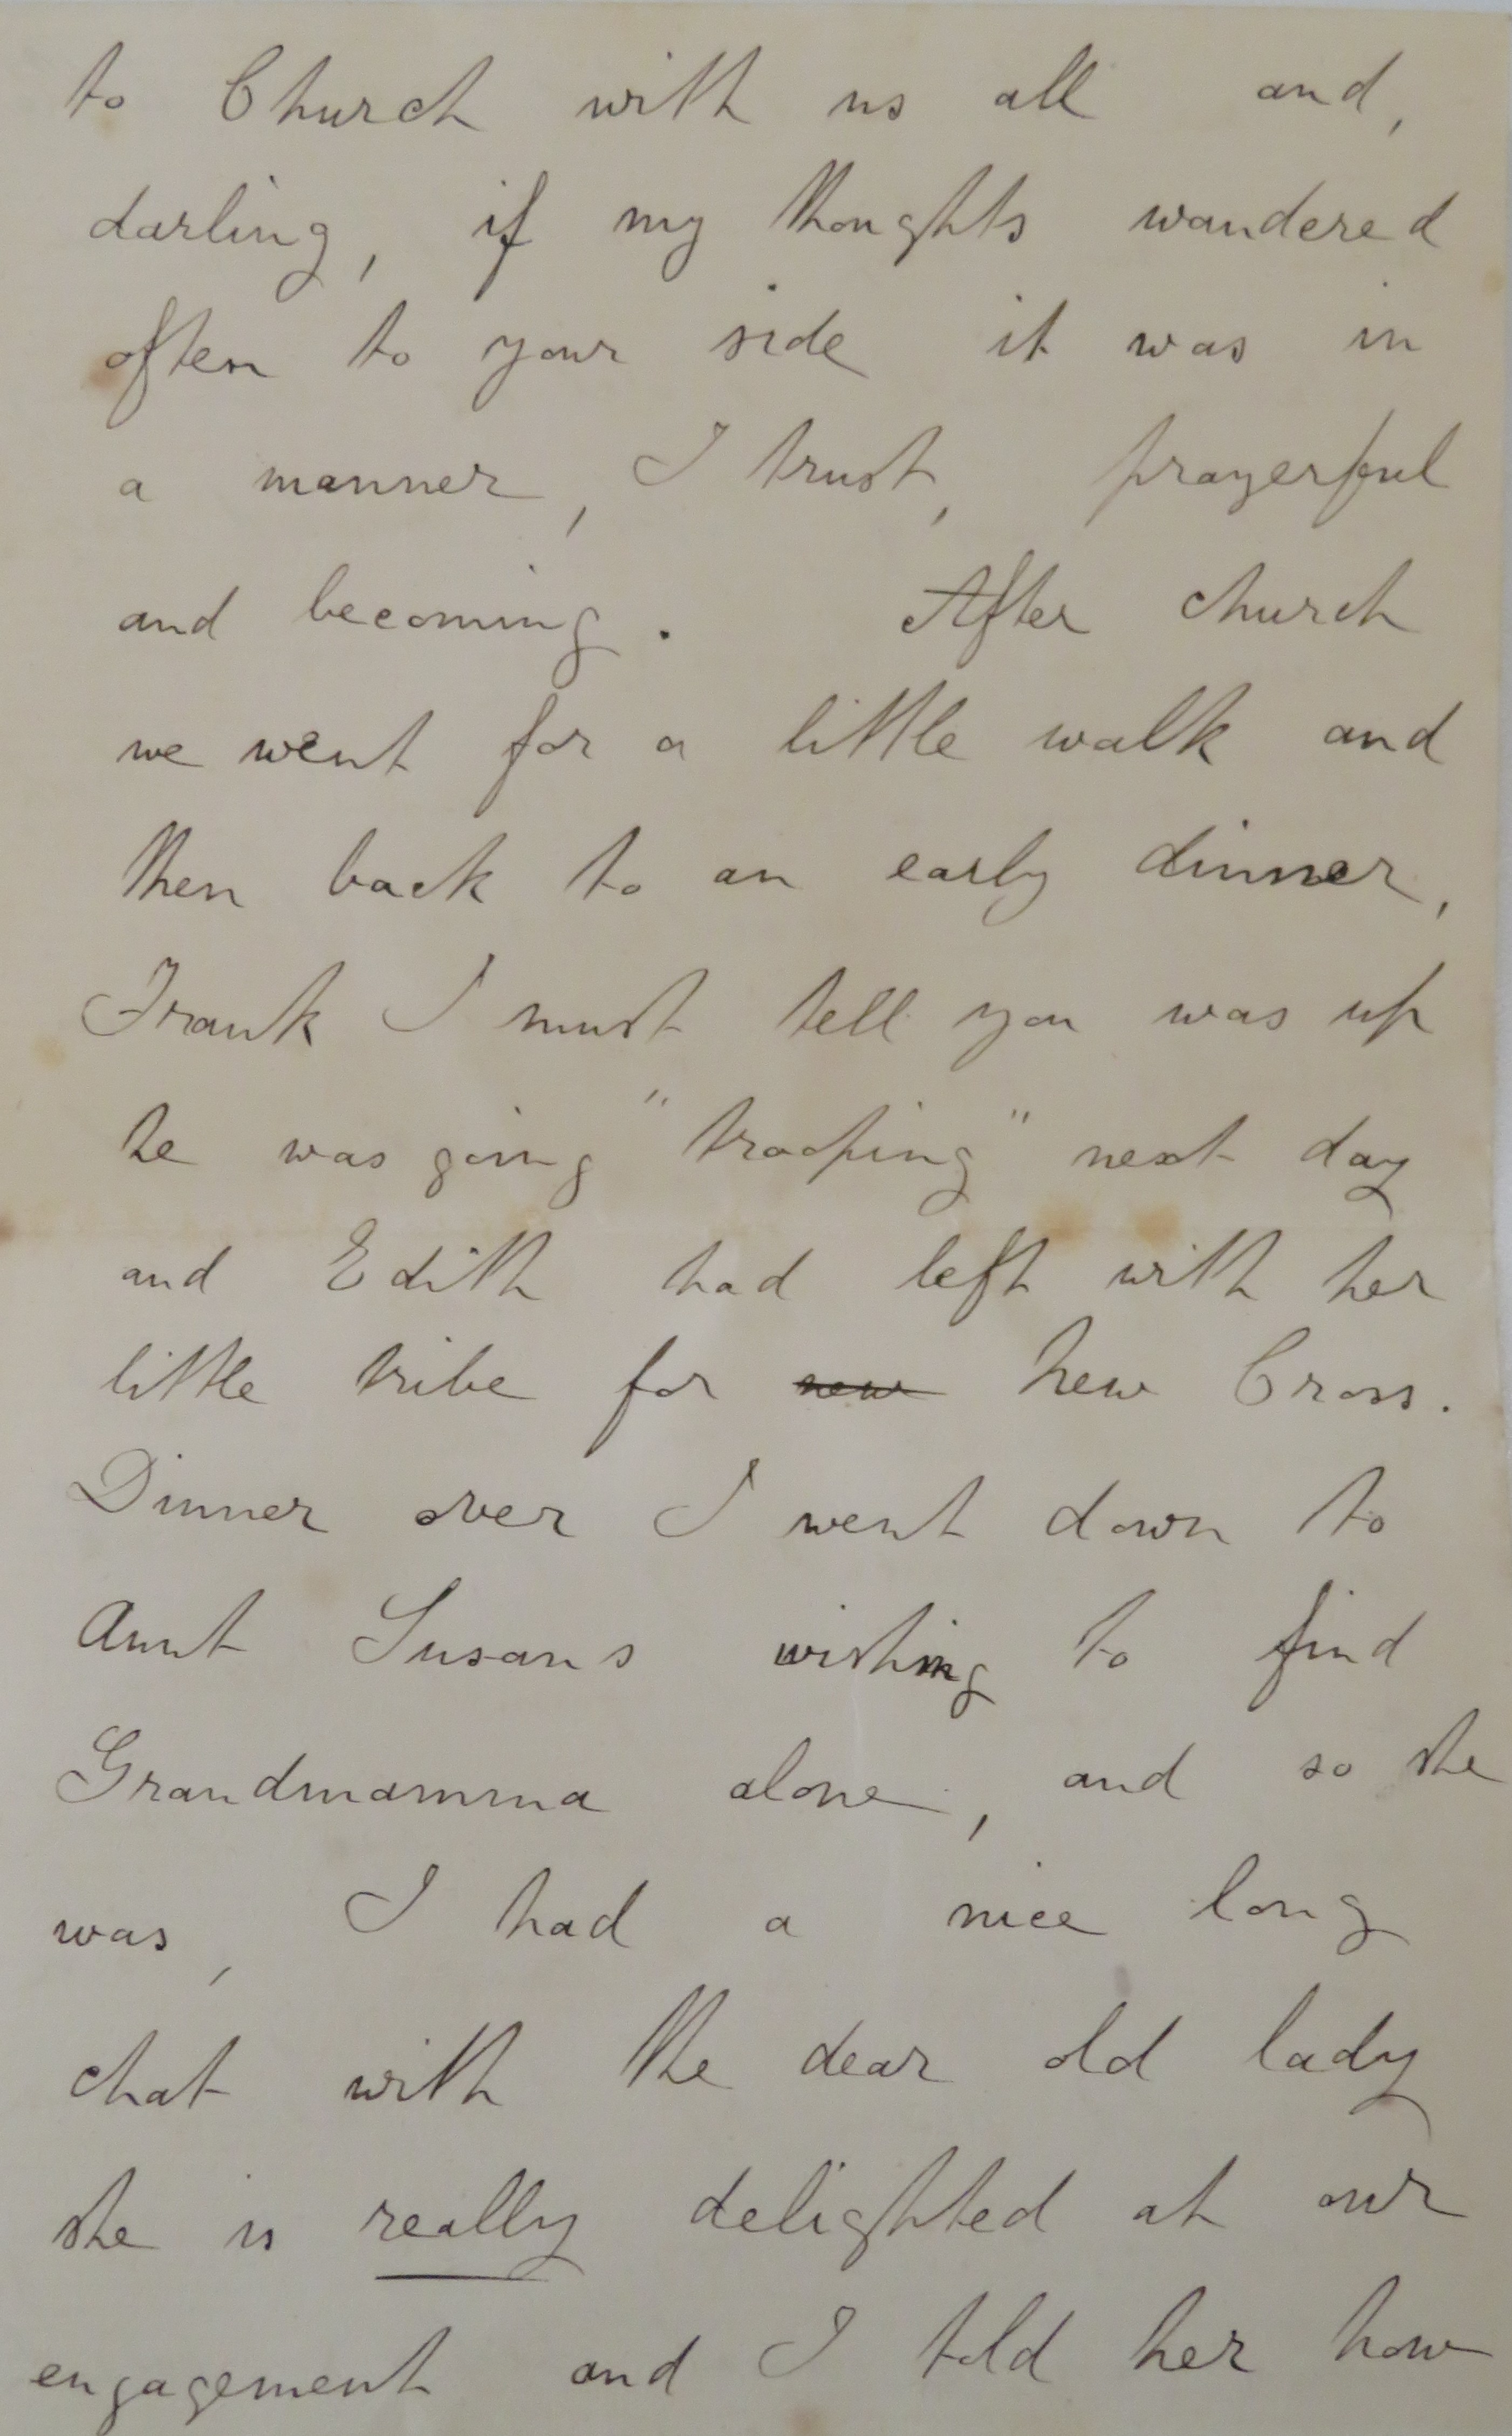 to Church with us all and,
darling, if my thoughts wandered
often to your side it was in
a manner, I trust, prayerful
and becoming. After church
we went for a little walk and
then back to an early dinner,
Frank I must tell you was up
he was going "trooping" next day
and Edith had left with her
little tribe for ~~new~~ New Cross.
Dinner over I went down to
Aunt Susans wishing to find
Grandmamma alone, and so she
was, I had a nice long
chat with the dear old lady
she is really delighted at our
engagement and I told her how